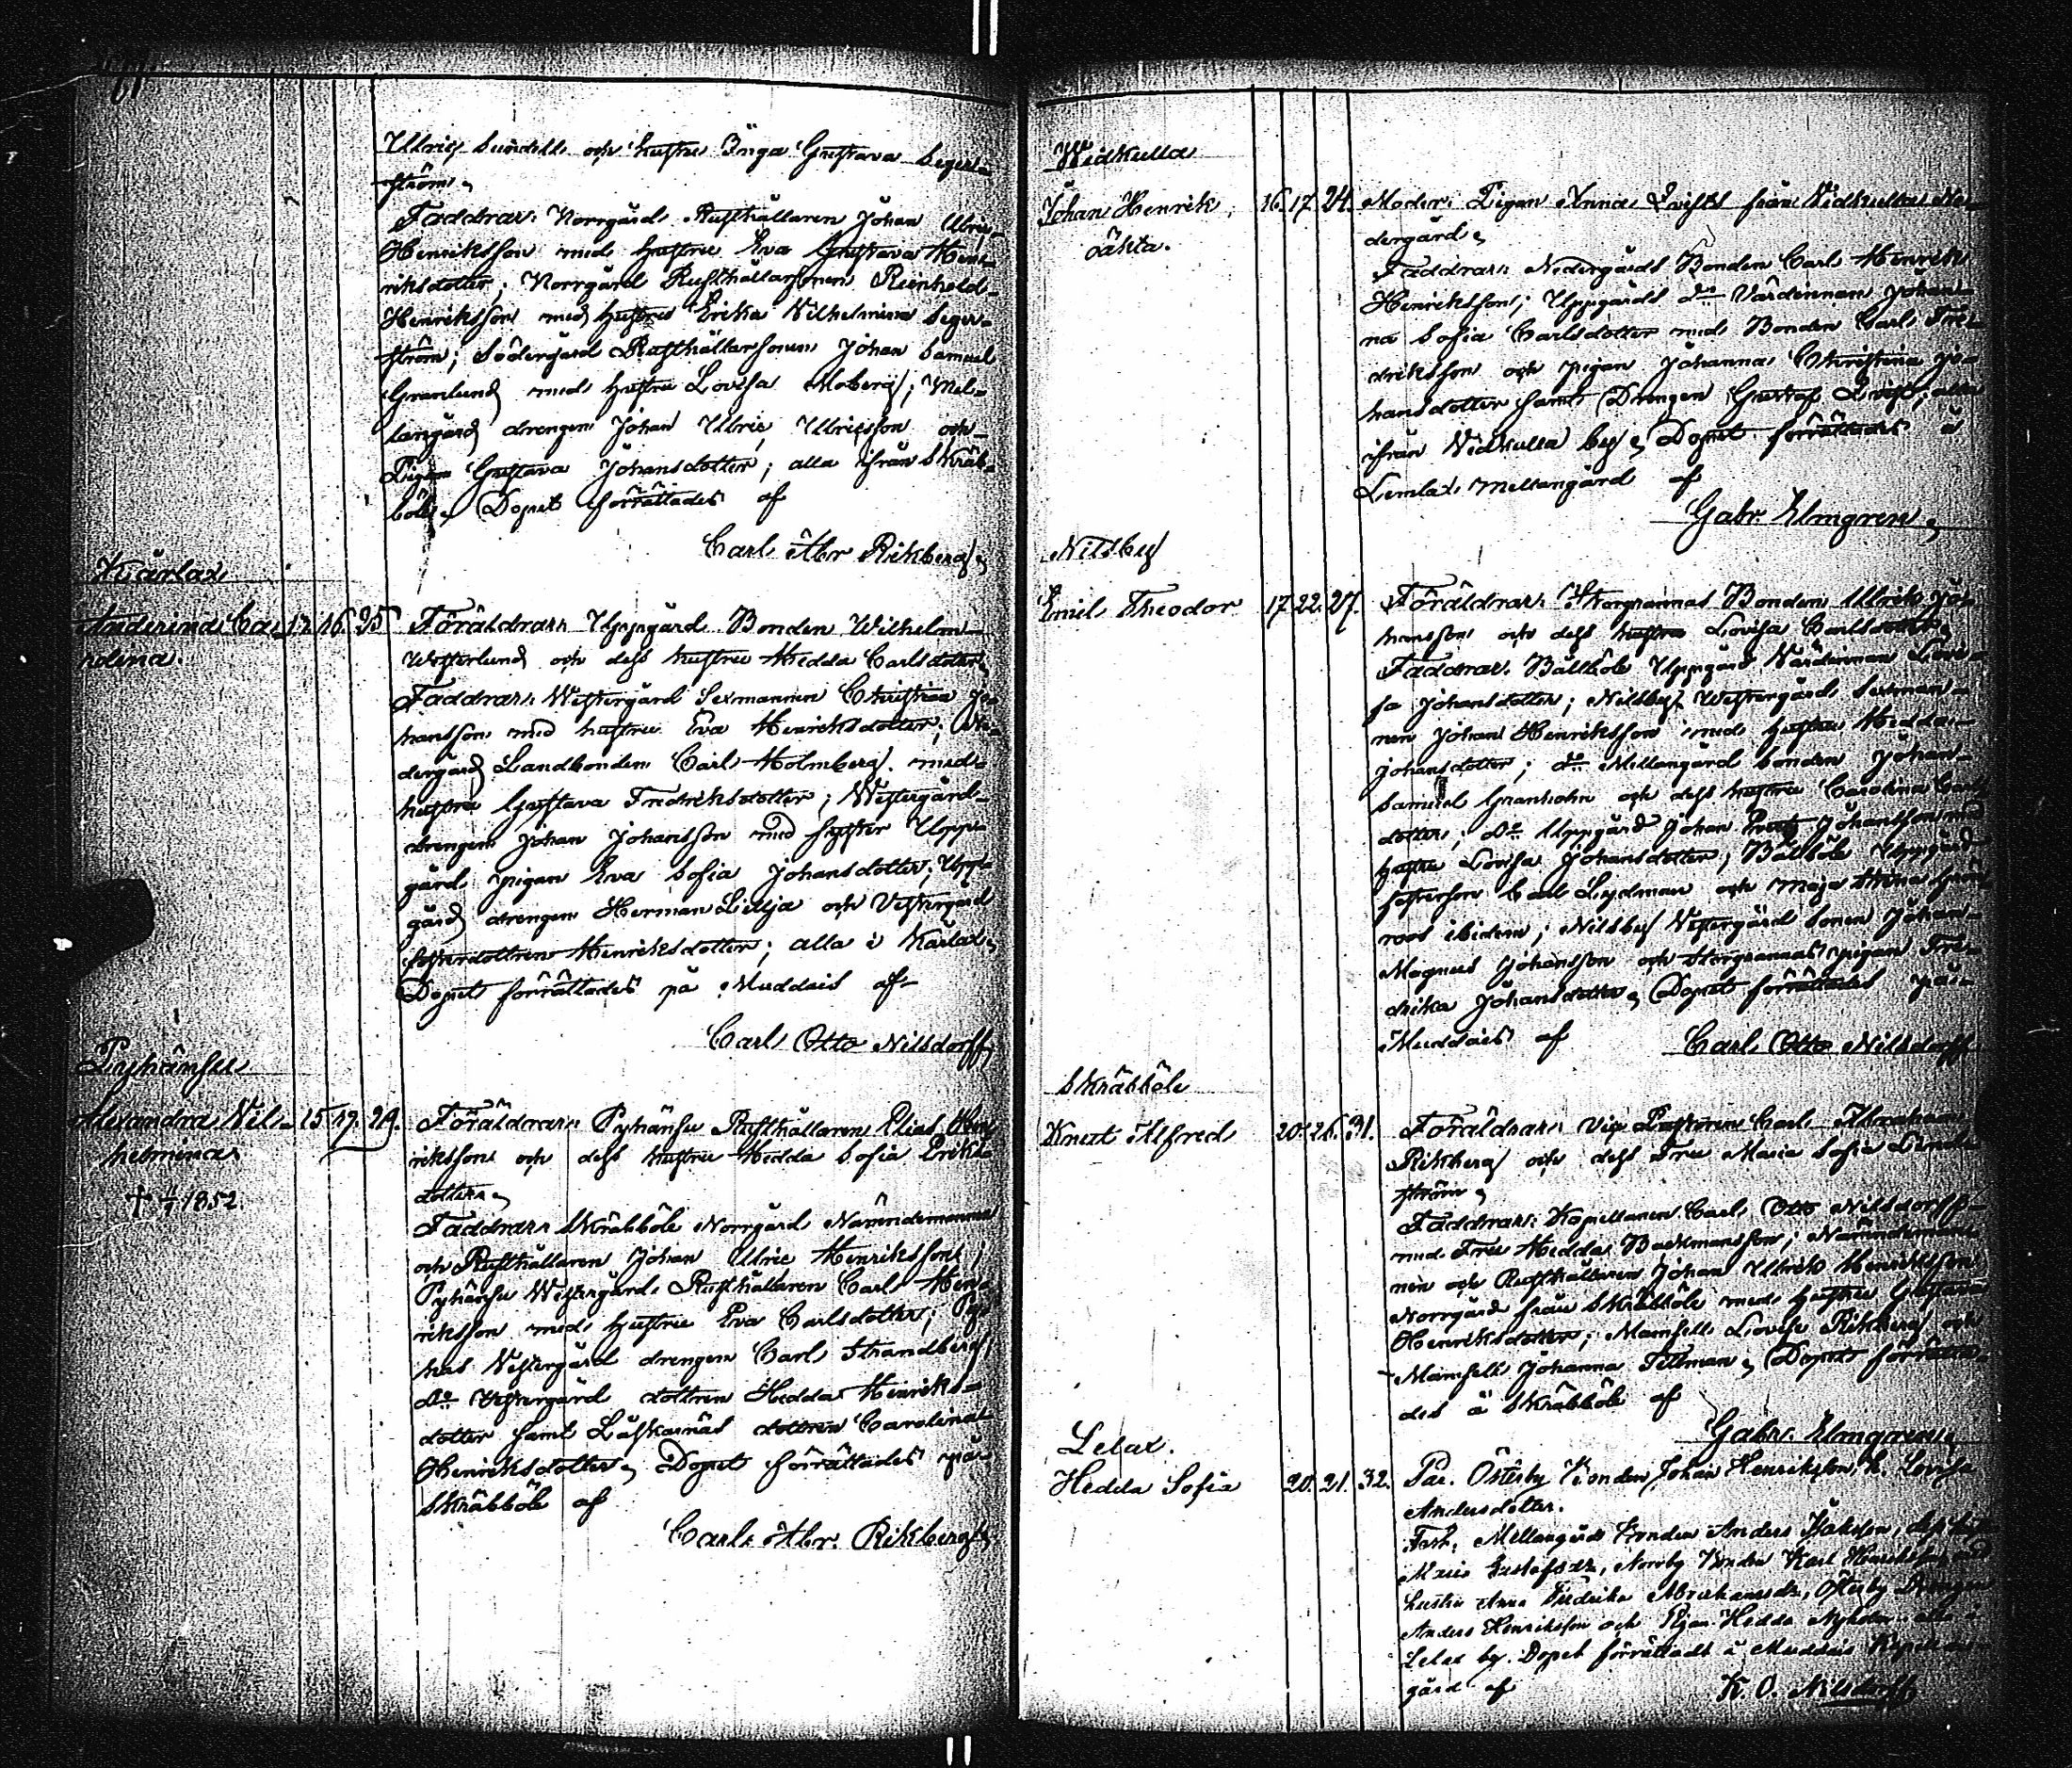 Ulric Sundell och hustru Inga Gustava Seger-
ström.
Faddrar: Norrgård Rusthållaren Johan Ulric
Henriksson med hustru Eva Gustava Hen-
riksdotter; Norrgård Rusthållarsonen Reinhold
Henriksson med hustru Erika Wilhelmina Seger-
ström; Södergård Rusthållarsonen Johan Samuel
Granlund med hustru Lovisa Moberg; Mel-
langård drengen Johan Ulric Ulricsson och
Pigan Gustava Johansdotter; alla ifrån Skräb-
böle. Dopet förrättades af
Carl Abr Rikberg.
Kärlax
Anderina Ca- 12. 16. 25. Föräldrar: Uppgård Bonden Wilhelm
rolina. Westerlund och dess hustru Hedda Carlsdotter.
Faddrar: Westergård Sexmannen Christian Jo-
hansson med hustru Eva Henriksdotter; Ne-
dergård Landbonden Carl Holmberg med
hustru Gustava Fredriksdotter; Westergård
drengen Johan Johansson med syster Upp-
gård pigan Eva Sofia Johansdotter; Upp-
gård drengen Herman Lillja och Vestergård
Henriksdotter; alla i Kärlax.
Dopet förrättades på Muddais af
Carl Otto Nilsdorff.
Pyhänsu
Alexandra Vil- 15. 17. 29. Föräldrar: Pyhänsu Rusthållaren Elias Hen-
helmina riksson och dess hustru Hedda Sofia Eriks-
dotter.
† 1852. Faddrar: Skräbböle Norrgård Nämndemannen
och Rusthållaren Johan Ulric Henriksson;
Pyhänsu Westergård Rusthållaren Carl Hen-
riksson med hustru Eva Carlsdotter;
Vestergård drengen Carl Strandberg
Do Vestergård dottren Hedda Henriks-
dotter samt dottren Carolina
Henriksdotter. Dopet förrättades på
Skräbböle af
Carl Abr. Rikberg.
Widkulla
Johan Henrik 16. 17. 24. Moder: Pigan Anna Qvist från Vidkulla Ne-
oäkta. dergård.
Faddrar: Nedergårds Bonden Carl Henrik
Henriksson; Uppgårds Do Värdinnan Johan-
na Sofia Carlsdotter med Bonden Carl Fred-
driksson och pigan Johanna Christina Jo-
hansdotter samt Drengen Gustaf Qvist; alla
ifrån Vidkulla by. Dopet förrättades å
Lemlax Mellangård af
Gabr. Elmgren.
Nilsby
Emil Theodor 17. 22. 27. Föräldrar: Storgrannas Bonden Ulrik Jo-
hansson och dess hustru Lovisa Carlsdotter.
Faddrar: Bälböle Uppgård Värdinnan Lovi-
sa Johansdotter; Nilsby Westergårds Sexman-
nen Johan Henriksson med hustru Hedda
Johansdotter; do Mellangård bonden Johan
Samuel Granholm och dess hustru Carolina Carls
dotter; Do Uppgård Johan Johansson med
hustru Lovisa Johansdotter; Bälböle Uppgård
Carl Lydman och Maja Stina
roos ibidem; Nilsby Vestergård Sonen Johan
Magnus Johansson och Storgrannas pigan Fre-
drika Johansdotter. Dopet förrättades på
Muddais af Carl Otto Nilsdorff
Skräbböle
Knut Alfred 20. 26. 31. Föräldrar: Vice Pastoren Carl Abraham
Rikberg och dess Fru Maria Sofia Lind-
ström.
Faddrar: Kapellanen Carl Otto Nilsdorff
med Fru Hedda Backmansson; Nämndeman-
nen och Rusthållaren Johan Ulrik Henriksson
Norrgård från Skräbböle med hustru Gustava
Henriksdotter; Mamsell Lovise Rikberg och
Mamsell Johanna Tillman. Dopet förrätta-
des å Skräbböle af
Gabr. Elmgren.
Lelax.
Hedda Sofia 20. 21. 32. Par. Österby Bonden Johan Henriksson, h. Lovisa
Andersdotter.
Test. Mellangårds Bonden Anders Isaksson, dess hustru
Maria Gustafsdr, Norrby Bonden Karl Henriksson med
hustru Anna Fredrika Abrahamsdr, Österby Drengen
Anders Henriksson och Pigan Hedda Nyholm alla i
Lelax by. Dopet förrättadt å Muddais Kapellans
gård af K. O. Nilsdorff